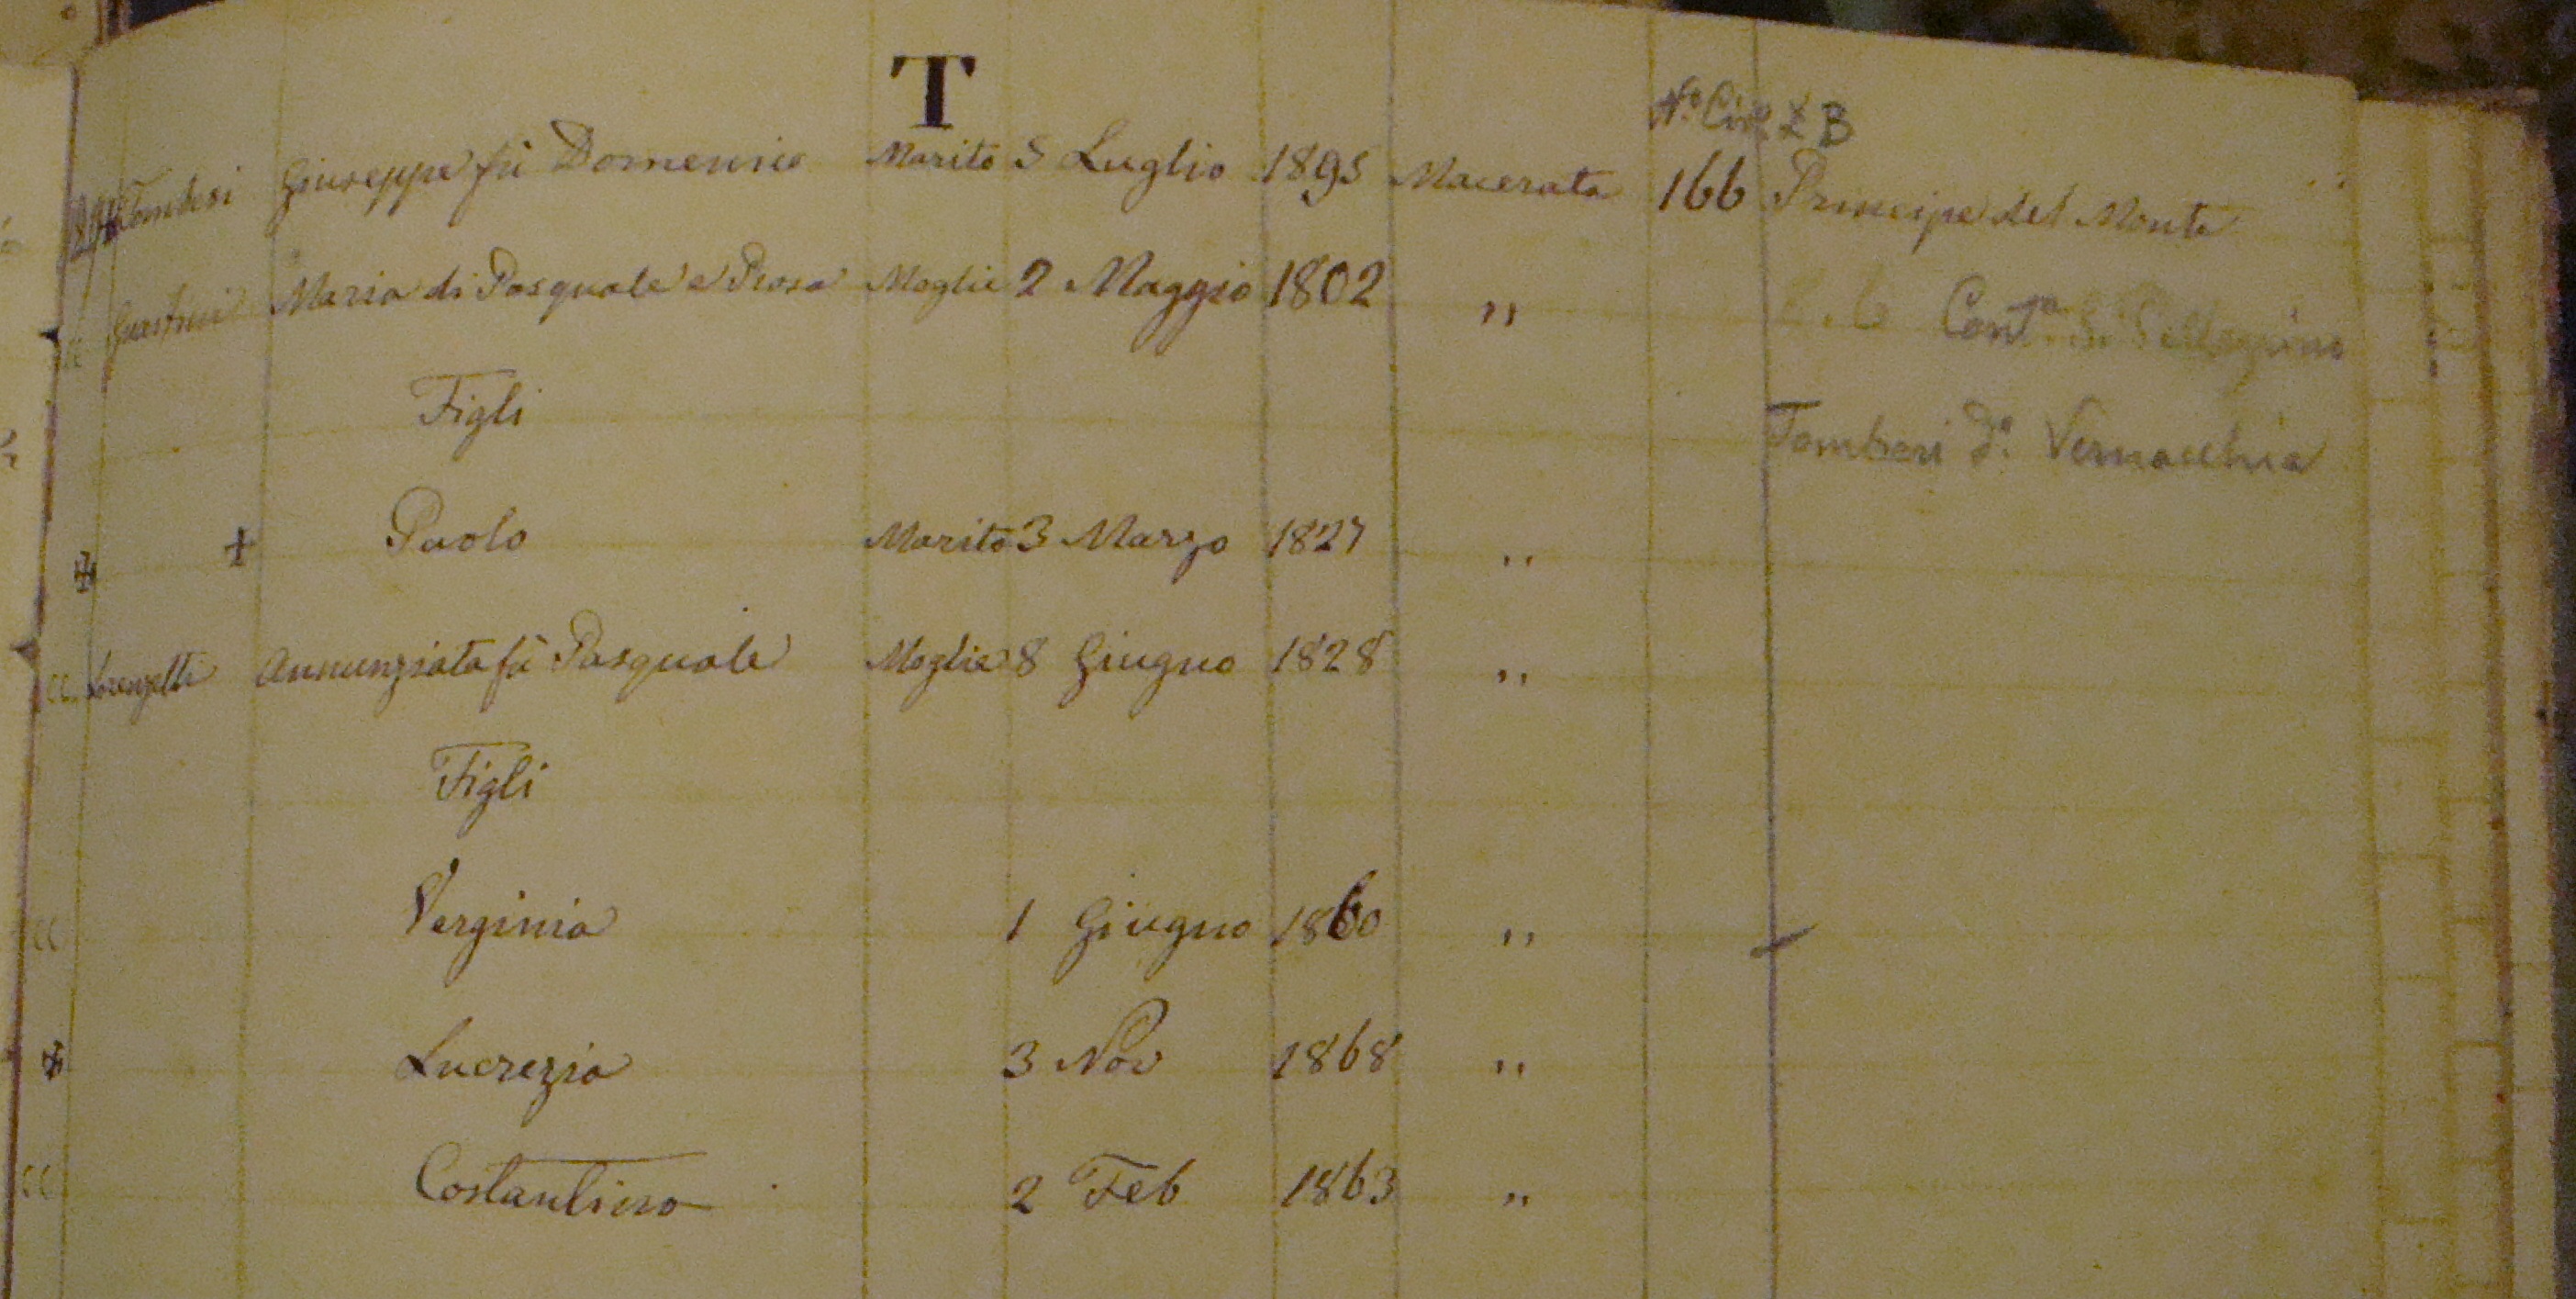 T
N.º Civ. L B
Tombesi Giuseppe fù Domenico Marito 5 Luglio 1895 Macerata 166 Principe del Monte
Maria di Pasquale e Rosa Moglie 2 Maggio 1802 " Cont.a Pellegrino
Figli
Tombesi d.º Vernacchia
+ Paolo Marito 3 Marzo 1827 "
Lorenzetti Annunziata fù Pasquale Moglie 8 Giugno 1828 "
Figli
Verginia 1 Giugno 1860 "
Lucrezia 3 Nov 1868 "
Costantino 2 Feb 1863 "